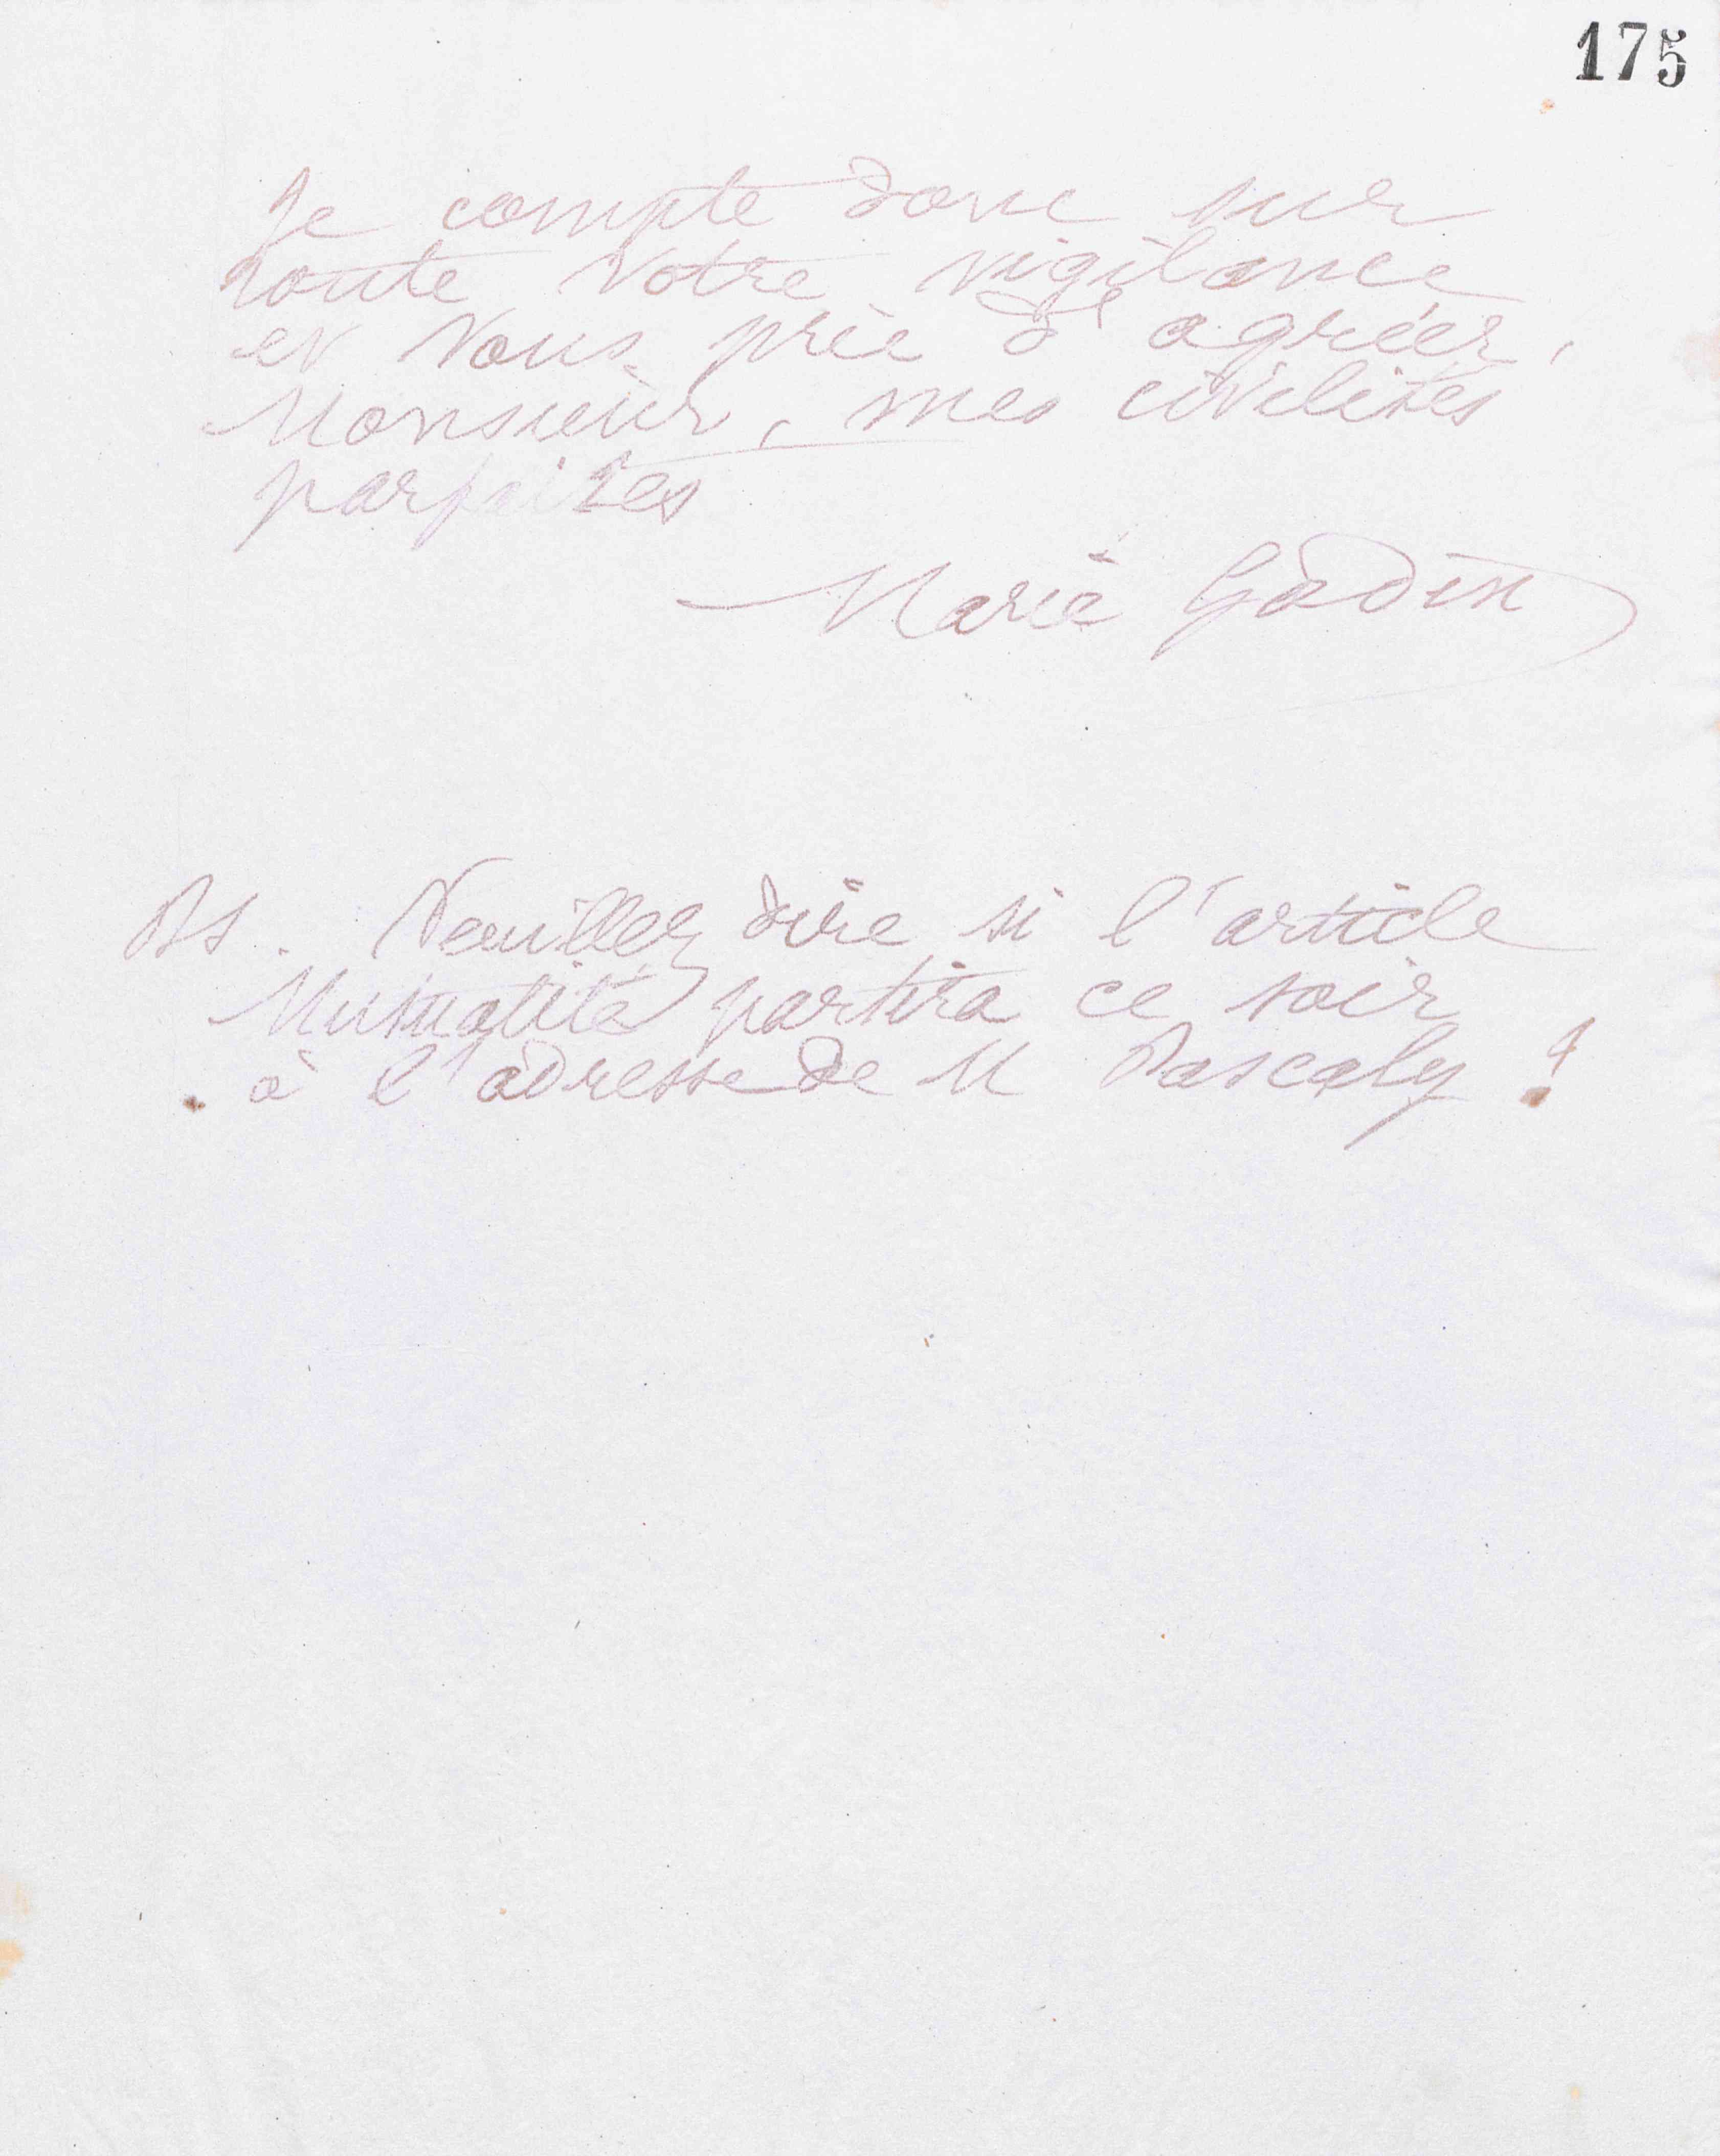 175
Je compte donc sur
toute votre vigilance
et vous prie d'agréer,
Monsieur, mes civilités
parfaites
Marie Godin
Ps. Veuillez dire si l'article
Mutualité partira ce soir
à l'adresse de M Pascaly ?